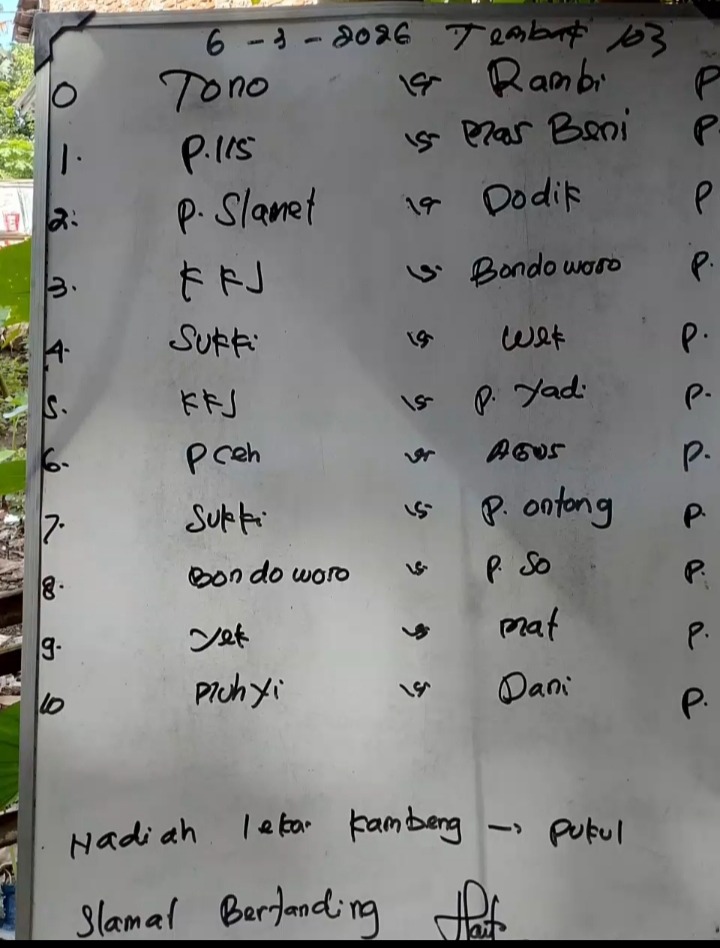 6 - 3 - 2026 Tembak 103
0 Tono vs Rambi P
1. P. IIS vs Mas Beni P.
2. P. Slamet vs Dodik P
3. KKJ vs Bondowoso P.
4. Sukki vs Wek P.
5. KKJ vs P. Yadi P.
6. P ceh vs AGUS P.
7. Sukki vs P. ontong P.
8. Bondowoso vs P. So P.
9. Yek vs Mat P.
10 Muhyi vs Dani P.
Hadiah Kambeng → Pukul
Slamat Bertanding